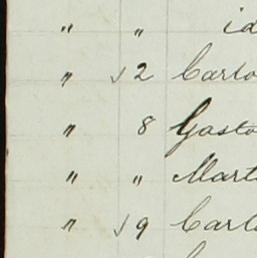 " " id
" 12 Carlo
" 8 Gasto
" " Mart
" 19 Carlo